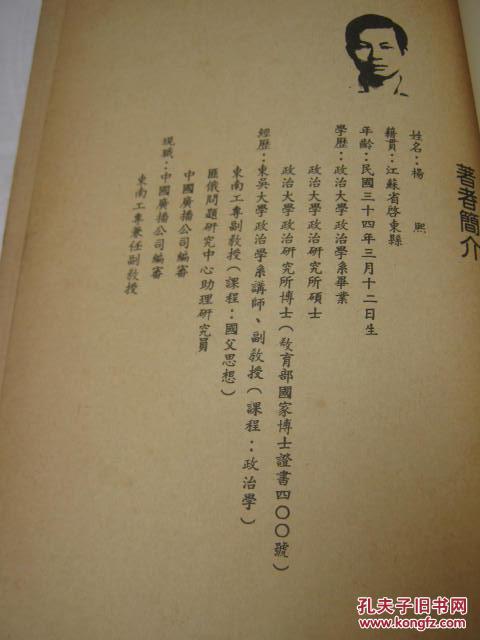 著者簡介
姓名：楊　熙
籍貫：江蘇省啓東縣
年齡：民國三十四年三月十二日生
學歷：政治大學政治學系畢業
政治大學政治研究所碩士
政治大學政治研究所博士（教育部國家博士證書四〇〇號）
經歷：東吳大學政治學系講師、副教授（課程：政治學）
東南工專副教授（課程：國父思想）
匪俄問題研究中心助理研究員
中國廣播公司編審
現職：中國廣播公司編審
東南工專兼任副教授
孔夫子旧书网
kongfz.com